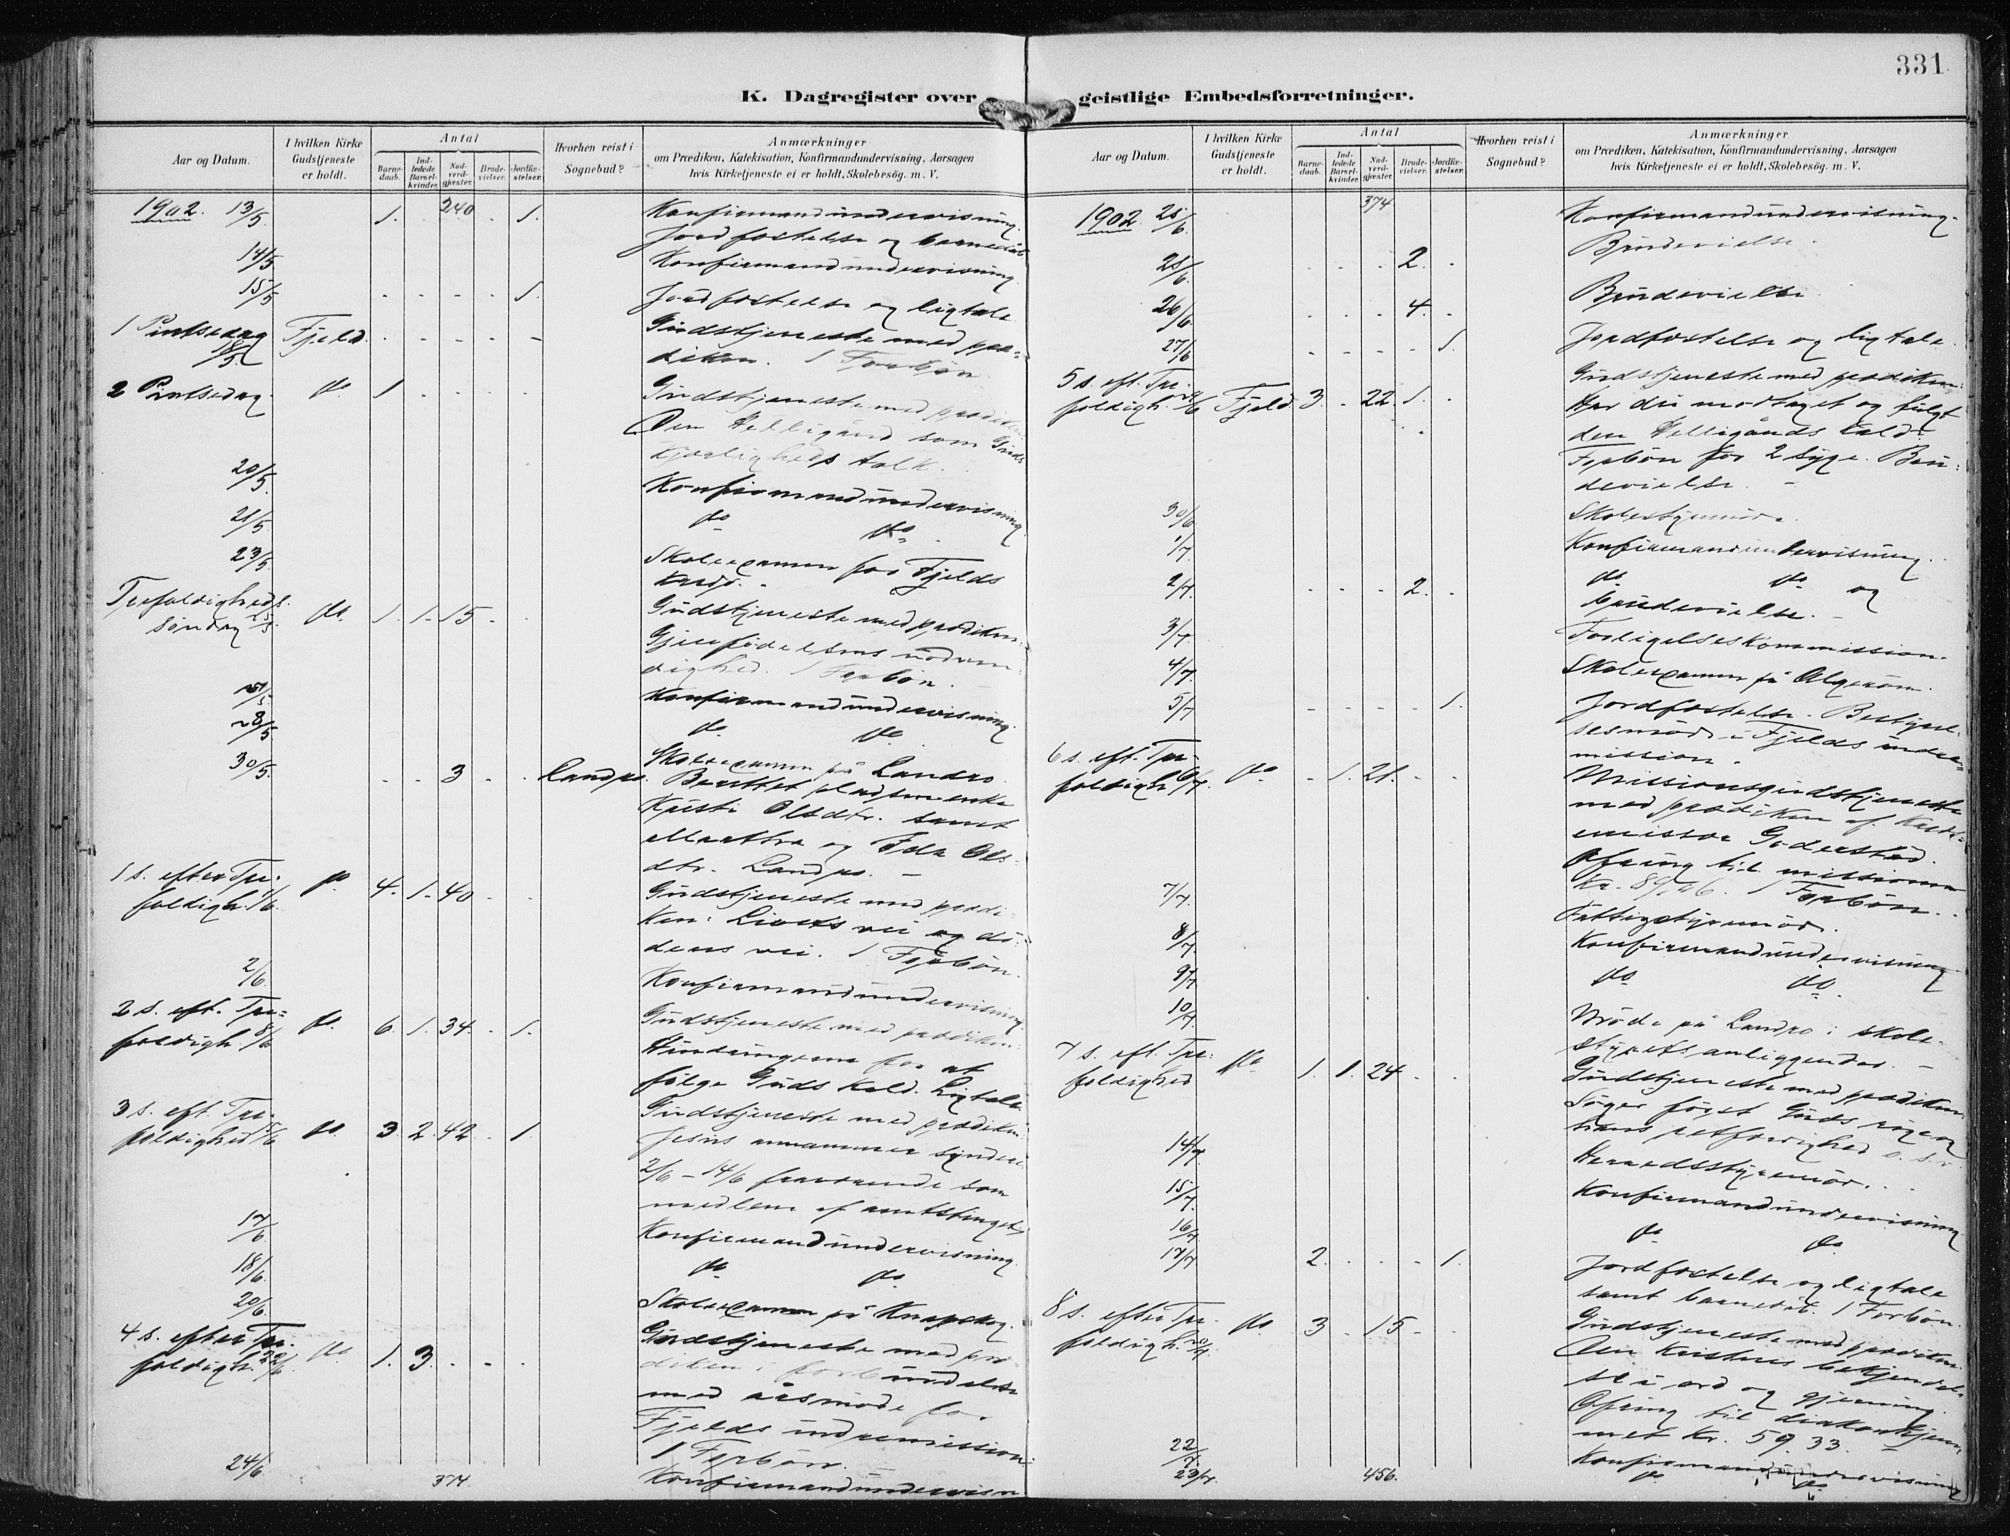 331
K. Dagregister over geistlige Embedsforretninger.
Aar og Datum.
I hvilken Kirke Gudstjeneste er holdt.
Antal
Barnedaab.
Indledede Barselkvinder.
Nadverdgjester.
Brudevielser.
Jordfæstelser.
Hvorhen reist i Sognebud?
Anmærkninger
om Prædiken, Katekisation, Konfirmandundervisning, Aarsagen
hvis Kirketjeneste ei er holdt, Skolebesøg. m. V.
1902. 13/5 1. 240 . 1. Konfirmandundervisning.
Jordfæstelse og barnedåb
14/5 Konfirmandundervisning
15/5 . . . . 1. Jordfæstelse og ligtale
1 Pintsedag 18/5 Fjeld . . . . . Gudstjeneste med præ-
diken. 1 Forbøn
2 Pintsedag do. 1 Gudstjeneste med prædiken
Den Helligånd som Guds
Kjærligheds tolk.
20/5 Konfirmandundervisning
21/5 do do.
23/5 Skoleexamen for Fjelds
Kreds.
Trefoldigheds-
søndag 25/5 do. 1. 1. 15. Gudstjeneste med prædiken:
Gjenfødelsens nødven-
dighed. 1 Forbøn.
Konfirmandundervisning.
28/5 do do.
30/5 . . 3 . . Landro. Skoleexamen på Landro.
Berettet
Kristi Olsdtr. samt
Martha og Ida Ols-
dtr. Landro.
1 s. efter Tre-
foldigh. 1/6 do. 4. 1. 40 . . Gudstjeneste med prædi-
ken: Livets vei og dø-
dens vei. 1 Forbøn.
2/6 Konfirmandundervisning.
2 s. eft. Tre-
foldigh. 8/6 do. 6. 1. 34. . 1. Gudstjeneste med prædiken:
Hindringerne for at
følge Guds Kald. Ligtale
3 s. eft. Tre-
foldighed 15/6 do. 3. 2. 42. . 1. Gudstjeneste med prædiken:
Jesus annammer syndere.
2/6 – 14/6 fraværende som
medlem af amtstinget.
17/6 Konfirmandundervisning.
18/6 do do.
20/6 Skoleexamen på Knapskog.
4 s. efter Tre-
foldigh. 22/6 do. 1. 3. . . Gudstjeneste med præ-
diken i forbindelse
med årsmøde for
Fjelds indremission.
1 Forbøn.
24/6 374 Konfirmandundervisn
Aar og Datum.
I hvilken Kirke Gudstjeneste er holdt.
Antal
Barnedaab.
Indledede Barselkvinder.
Nadverdgjester.
Brudevielser.
Jordfæstelser.
Hvorhen reist i Sognebud?
Anmærkninger
om Prædiken, Katekisation, Konfirmandundervisning, Aarsagen
hvis Kirketjeneste ei er holdt, Skolebesøg. m. V.
1902. 25/6 374 Konfirmandundervisning.
Brudevielse.
25/6 . . . 2. . Brudevielse
26/6 . . . 4. .
27/6 . . . . 1. Jordfæstelse og ligtale.
5 s. eft. Tre-
foldigh. 29/6 Fjeld 3. . 22. 1. . Gudstjeneste med prædiken:
Har du modtaget og fulgt
den Helligånds Kald?
Forbøn for 2 syge. Bru-
devielse.
30/6 Skolestyremøde.
1/7 Konfirmandundervisning.
2/7 . . . 2. . do do og
brudevielse.
3/7 Forligelseskommission.
4/7 Skoleexamen på Algerøen.
5/7 1. Jordfæstelse. Bestyrel-
sesmøde i Fjelds indre-
mission.
6 s. eft. Tre-
foldigh. 6/7. do . 1. 21. . . Missionsgudstjeneste
med prædiken af
Ofring til missionen
Kr. 89,46. 1 Forbøn.
7/7. Fattigstyremøde.
8/7 Konfirmandundervisning
9/7 do do.
10/7 Møde på Landro i skole-
styrets anliggender.
7 s. eft. Tre-
foldighed do. 1. 1. 24 . . Gudstjeneste med prædiken
Søger først Guds rige og
hans retfærdighed o. s. v.
14/7 Herredsstyremøde.
15/7. Konfirmandundervisning
16/7 do do.
17/7 2. . . . 1. Jordfæstelse og ligtale
samt barnedåb. 1 Forbøn.
8 s. efter Tre-
foldigh. 20/7 do 3 . 15 . . Gudstjeneste med prædiken:
Den Kristnes bekjendel-
se i ord og gjerning.
Ofring til diakonhjem-
met Kr. 59.33.
22/7. Konfirmandundervisning
23/7. 456. do do